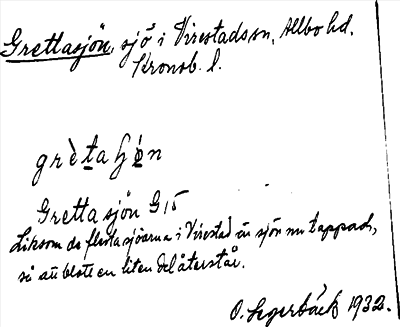 Grettasjön, sjö i Virestads sn, Allbo hd,
Kronob. l.
grèta ɧø̀n
Gretta sjön G 15
Liksom de flesta sjöarna i Virestad är sjön nu tappad,
så att blott en liten del återstår.
O. Segerbäck 1932.